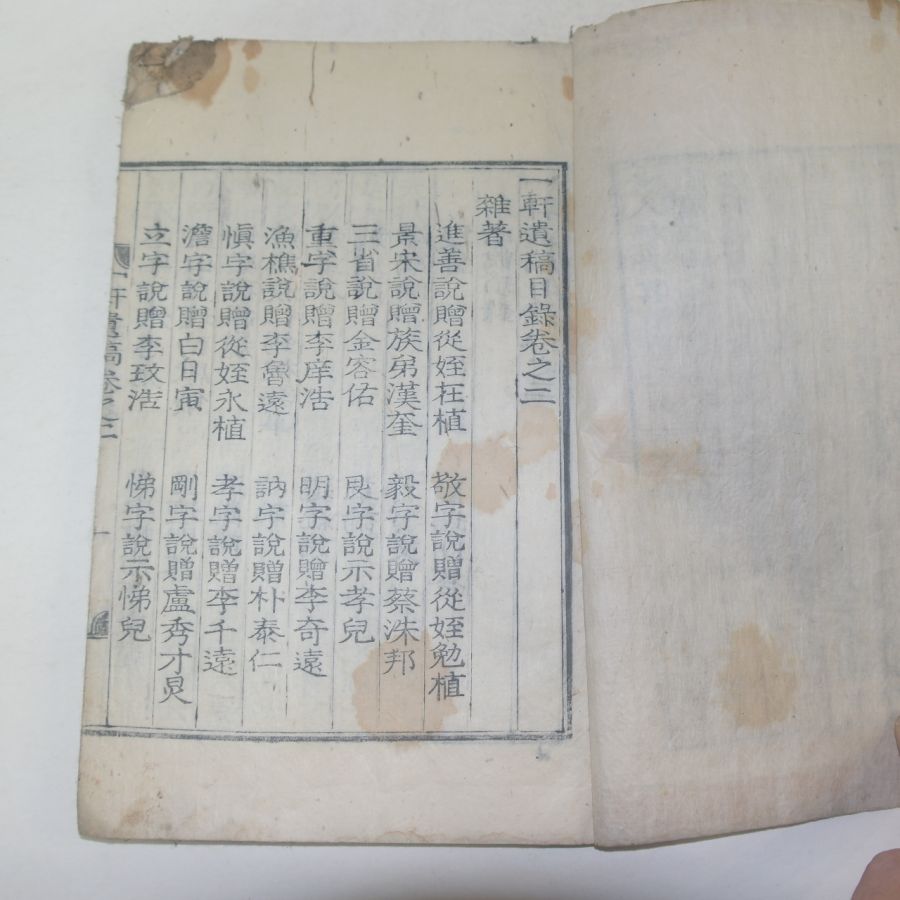 一軒遺稿目錄卷之三
雜著
進善說贈從姪在植 敬字說贈從姪勉植
景宋說贈族弟漢奎 毅字說贈蔡洙邦
三省說贈金容佑 艮字說示孝兒
重字說贈李庠浩 明字說贈李奇遠
漁樵說贈李魯遠 訥字說贈朴泰仁
愼字說贈從姪永植 孝字說贈李千遠
澹字說贈白日寅 剛字說贈盧秀才炅
立字說贈李玟浩 悌字說示悌兒
一軒遺稿卷之三
一